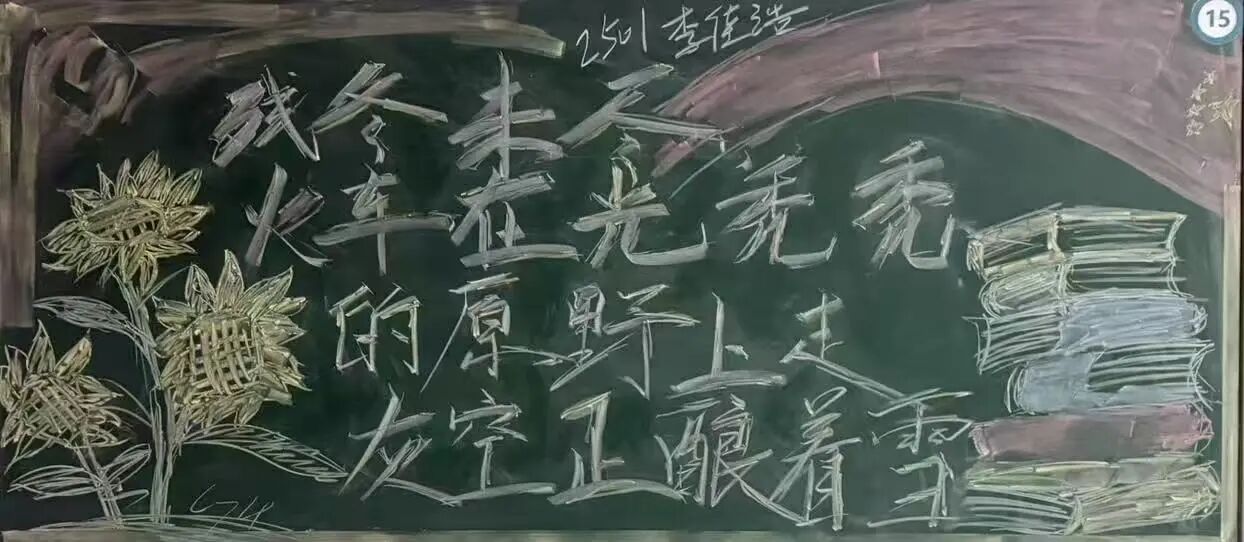 2501 李佳浩
15
残冬未尽
火车在光秃秃
的原野上走
灰空正酿着雪